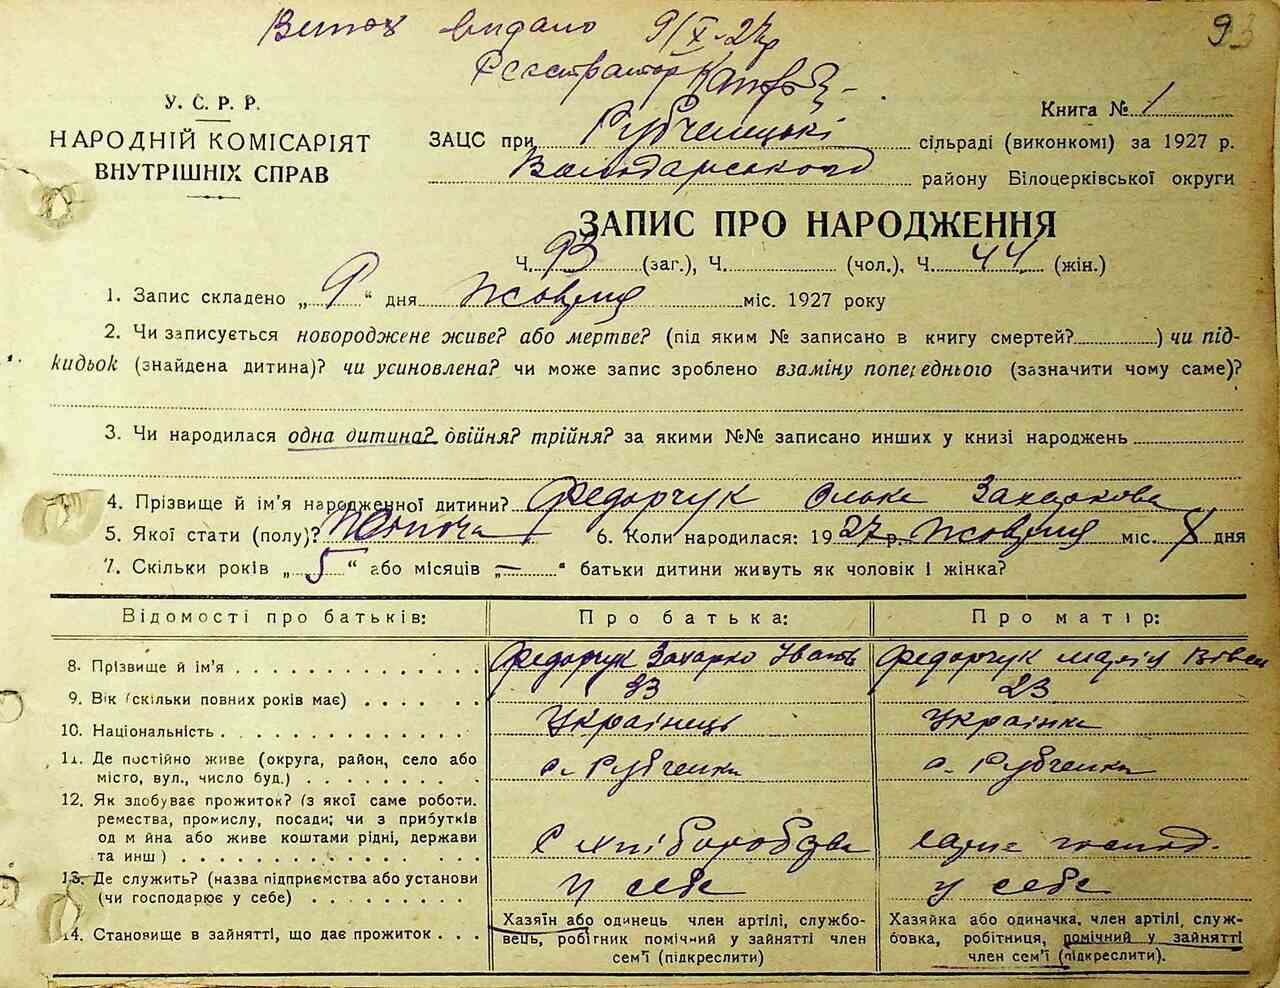 Витяг видано 9/X-27р
Реєстратор
93
У. С. Р. Р.
НАРОДНІЙ КОМІСАРІЯТ
ВНУТРІШНІХ СПРАВ
Книга № 1
ЗАЦС при Рубченцькі сільраді (виконкомі) за 1927 р.
Володарського району Білоцерківської округи
ЗАПИС ПРО НАРОДЖЕННЯ
Ч. 93 (заг.), Ч. (чол.), Ч. 44 (жін.)
1. Запис складено „ 9 “ дня Жовтня міс. 1927 року
2. Чи записується новороджене живе? або мертве? (під яким № записано в книгу смертей? ) чи під-
кидьок (знайдена дитина)? чи усиновлена? чи може запис зроблено взаміну попереднього (зазначити чому саме)?
3. Чи народилася одна дитина? двійня? трійня? за якими №№ записано инших у книзі народжень
4. Прізвище й ім'я народженної дитини? Федорчук Олька Захаркова
5. Якої стати (полу)? Жіноча 6. Коли народилася: 1927 р. Жовтня міс. 8 дня
7. Скільки років „ 5 “ або місяців „ — “ батьки дитини живуть як чоловік і жінка?
Відомості про батьків: Про батька: Про матір:
8. Прізвище й ім'я Федорчук Захарко Івань Федорчук Марія
9. Вік (скільки повних років має) 33 23
10. Національність Українець Українка
11. Де постійно живе (округа, район, село або
місто, вул., число буд.) с. Рубченки с. Рубченки
12. Як здобуває прожиток? (з якої саме роботи,
ремества, промислу, посади; чи з прибутків
од м йна або живе коштами рідні, держави
та инш) Хліборобства господ.
13. Де служить? (назва підприємства або установи
(чи господарює у себе) у себе у себе
14. Становище в зайнятті, що дає прожиток
Хазяїн або одинець член артілі, службо-
вець, робітник помічний у зайнятті член
сем'ї (підкреслити)
Хазяйка або одиначка, член артілі, служ-
бовка, робітниця, помічний у зайнятті
член сем'ї (підкреслити).